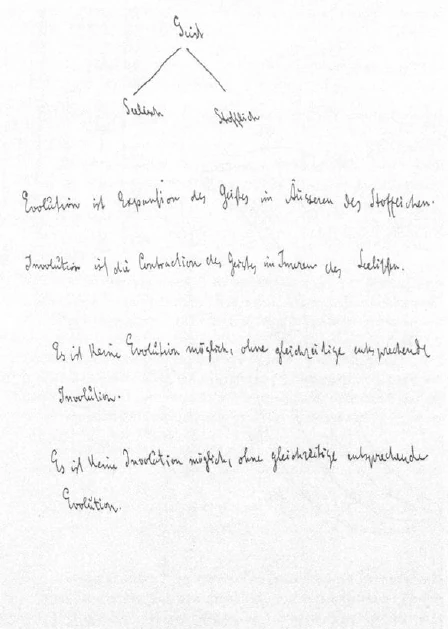 Geist
Seelisch Stofflich
Evolution ist Expansion des Geistes im Äusseren des Stofflichen.
Involution ist die Contraction des Geistes im Inneren des Seelischen.
Es ist keine Evolution möglich, ohne gleichzeitige entsprechende
Involution.
Es ist keine Involution möglich, ohne gleichzeitige entsprechende
Evolution.